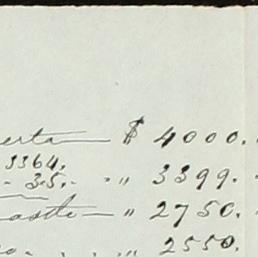 erta — $ 4000.
3364.
- 35. - " 3399.
aste — " 2750.
" 2550.